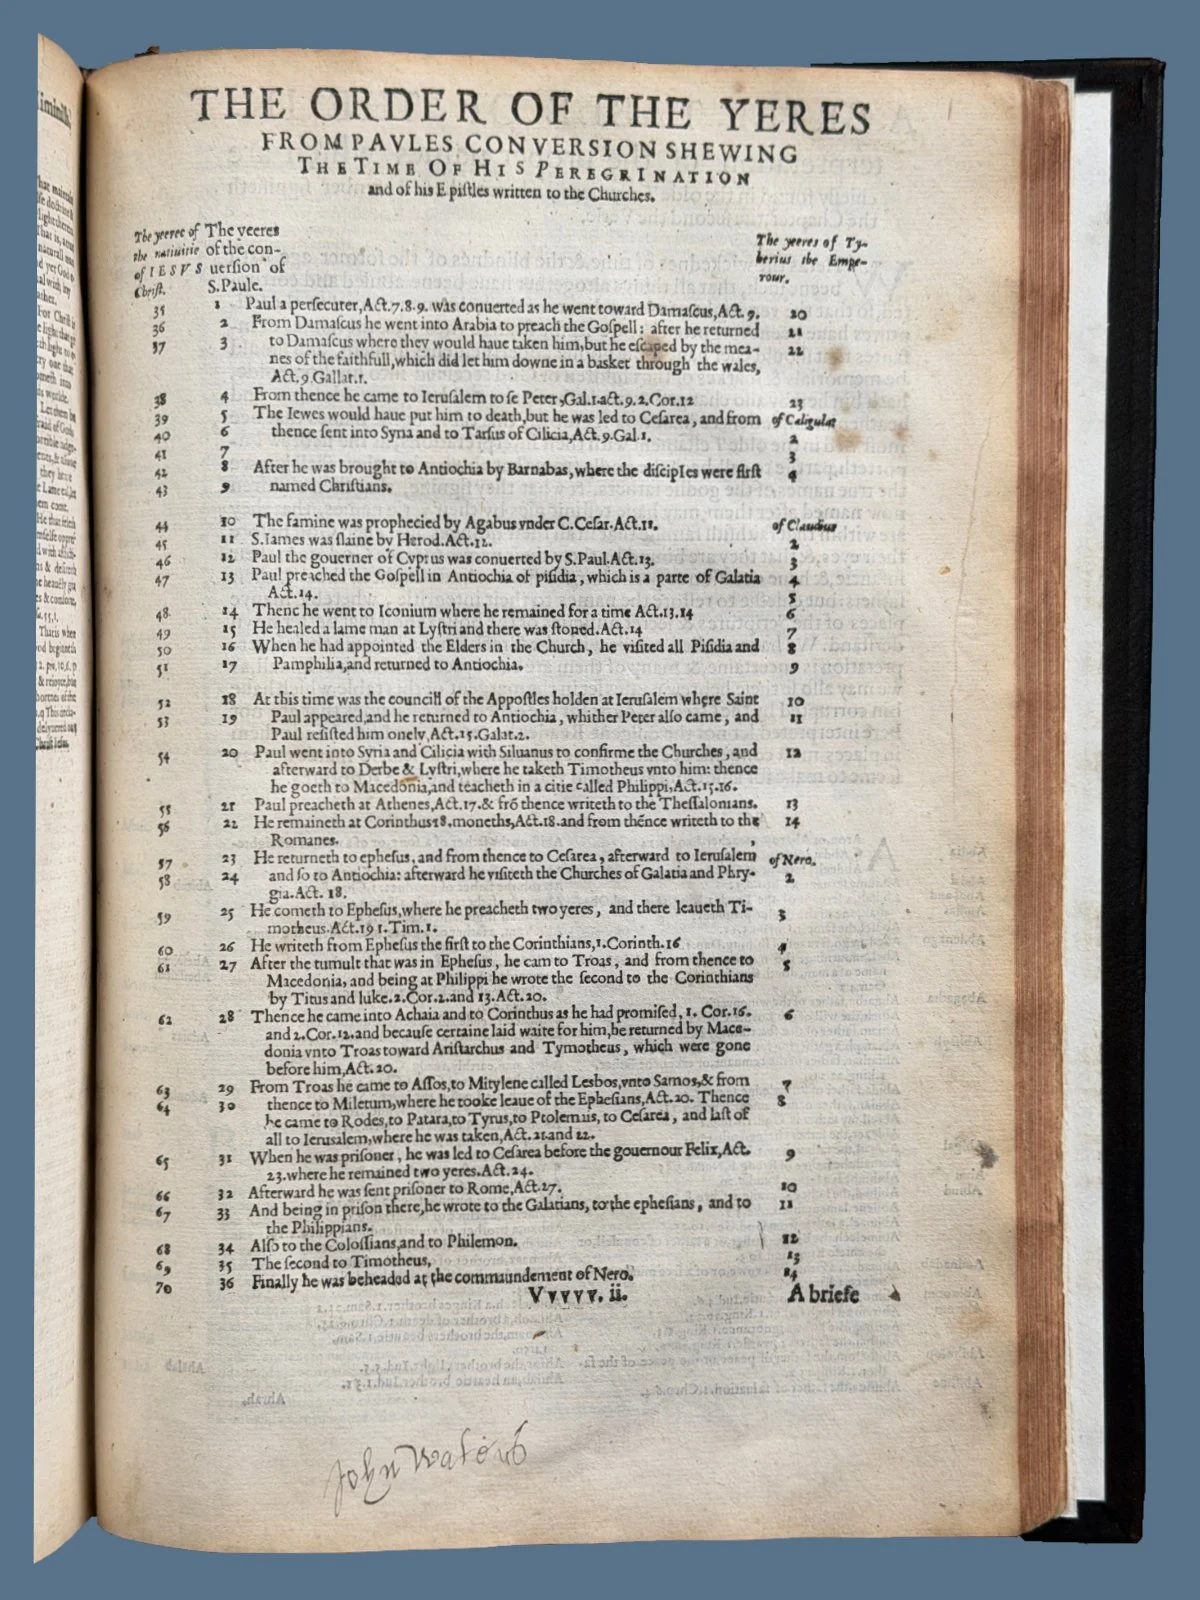 THE ORDER OF THE YERES
FROM PAVLES CONVERSION SHEWING
THE TIME OF HIS PEREGRINATION
and of his Epistles written to the Churches.
The yeeres of The yeeres
the natiuitie of the con-
of IESVS uersion of
Christ. S. Paule.
The yeeres of Ty-
berius the Empe-
rour.
35 1 Paul a persecuter, Act.7.8.9. was conuerted as he went toward Damascus, Act. 9. 20
36 2 From Damascus he went into Arabia to preach the Gospell: after he returned 21
37 3 to Damascus where they would haue taken him, but he escaped by the mea- 22
nes of the faithfull, which did let him downe in a basket through the wales,
Act. 9. Gallat. 1.
38 4 From thence he came to Ierusalem to se Peter, Gal.1.act.9.2.Cor.12 23
39 5 The Iewes would haue put him to death, but he was led to Cesarea, and from of Caligulat
40 6 thence sent into Syria and to Tarsus of Cilicia, Act.9.Gal.1. 2
41 7 3
42 8 After he was brought to Antiochia by Barnabas, where the disciples were first 4
43 9 named Christians.
44 10 The famine was prophecied by Agabus vnder C. Cesar. Act. 11. of Claudius
45 11 S. Iames was slaine by Herod. Act. 12. 2
46 12 Paul the gouerner of Cyprus was conuerted by S. Paul. Act. 13. 3
47 13 Paul preached the Gospell in Antiochia of pisidia, which is a parte of Galatia 4
Act. 14. 5
48 14 Thenc he went to Iconium where he remained for a time Act. 13.14 6
49 15 He healed a lame man at Lystri and there was stoned. Act. 14 7
50 16 When he had appointed the Elders in the Church, he visited all Pisidia and 8
51 17 Pamphilia, and returned to Antiochia. 9
52 18 At this time was the councill of the Appostles holden at Ierusalem where Saint 10
53 19 Paul appeared, and he returned to Antiochia, whither Peter also came, and 11
Paul resisted him onely, Act. 15. Galat. 2.
54 20 Paul went into Syria and Cilicia with Siluanus to confirme the Churches, and 12
afterward to Derbe & Lystri, where he taketh Timotheus vnto him: thence
he goeth to Macedonia, and teacheth in a citie called Philippi, Act. 15.16.
55 21 Paul preacheth at Athenes, Act. 17. & frō thence writeth to the Thessalonians. 13
56 22 He remaineth at Corinthus 18. moneths, Act. 18. and from thēnce writeth to the 14
Romanes.
57 23 He returneth to ephesus, and from thence to Cesarea, afterward to Ierusalem of Nero.
58 24 and so to Antiochia: afterward he visiteth the Churches of Galatia and Phry- 2
gia. Act. 18.
59 25 He cometh to Ephesus, where he preacheth two yeres, and there leaueth Ti- 3
motheus. Act. 19 1. Tim. 1.
60 26 He writeth from Ephesus the first to the Corinthians, 1. Corinth. 16 4
61 27 After the tumult that was in Ephesus, he cam to Troas, and from thence to 5
Macedonia, and being at Philippi he wrote the second to the Corinthians
by Titus and luke. 2. Cor. 2. and 13. Act. 20.
62 28 Thence he came into Achaia and to Corinthus as he had promised, 1. Cor. 16. 6
and 2. Cor. 12. and because certaine laid waite for him, he returned by Mace-
donia vnto Troas toward Aristarchus and Tymotheus, which were gone
before him, Act. 20.
63 29 From Troas he came to Assos, to Mitylene called Lesbos, vnto Samos, & from 7
64 30 thence to Miletum, where he tooke leaue of the Ephesians, Act. 20. Thence 8
he came to Rodes, to Patara, to Tyrus, to Ptolemais, to Cesarea, and last of
all to Ierusalem, where he was taken, Act. 21. and 22.
65 31 When he was prisoner, he was led to Cesarea before the gouernour Felix, Act. 9
23. where he remained two yeres. Act. 24.
66 32 Afterward he was sent prisoner to Rome, Act. 27. 10
67 33 And being in prison there, he wrote to the Galatians, to the ephesians, and to 11
the Philippians.
68 34 Also to the Colossians, and to Philemon. 12
69 35 The second to Timotheus, 13
70 36 Finally he was beheaded at the commaundement of Nero. 14
Vvvvv. ii. A briefe
John